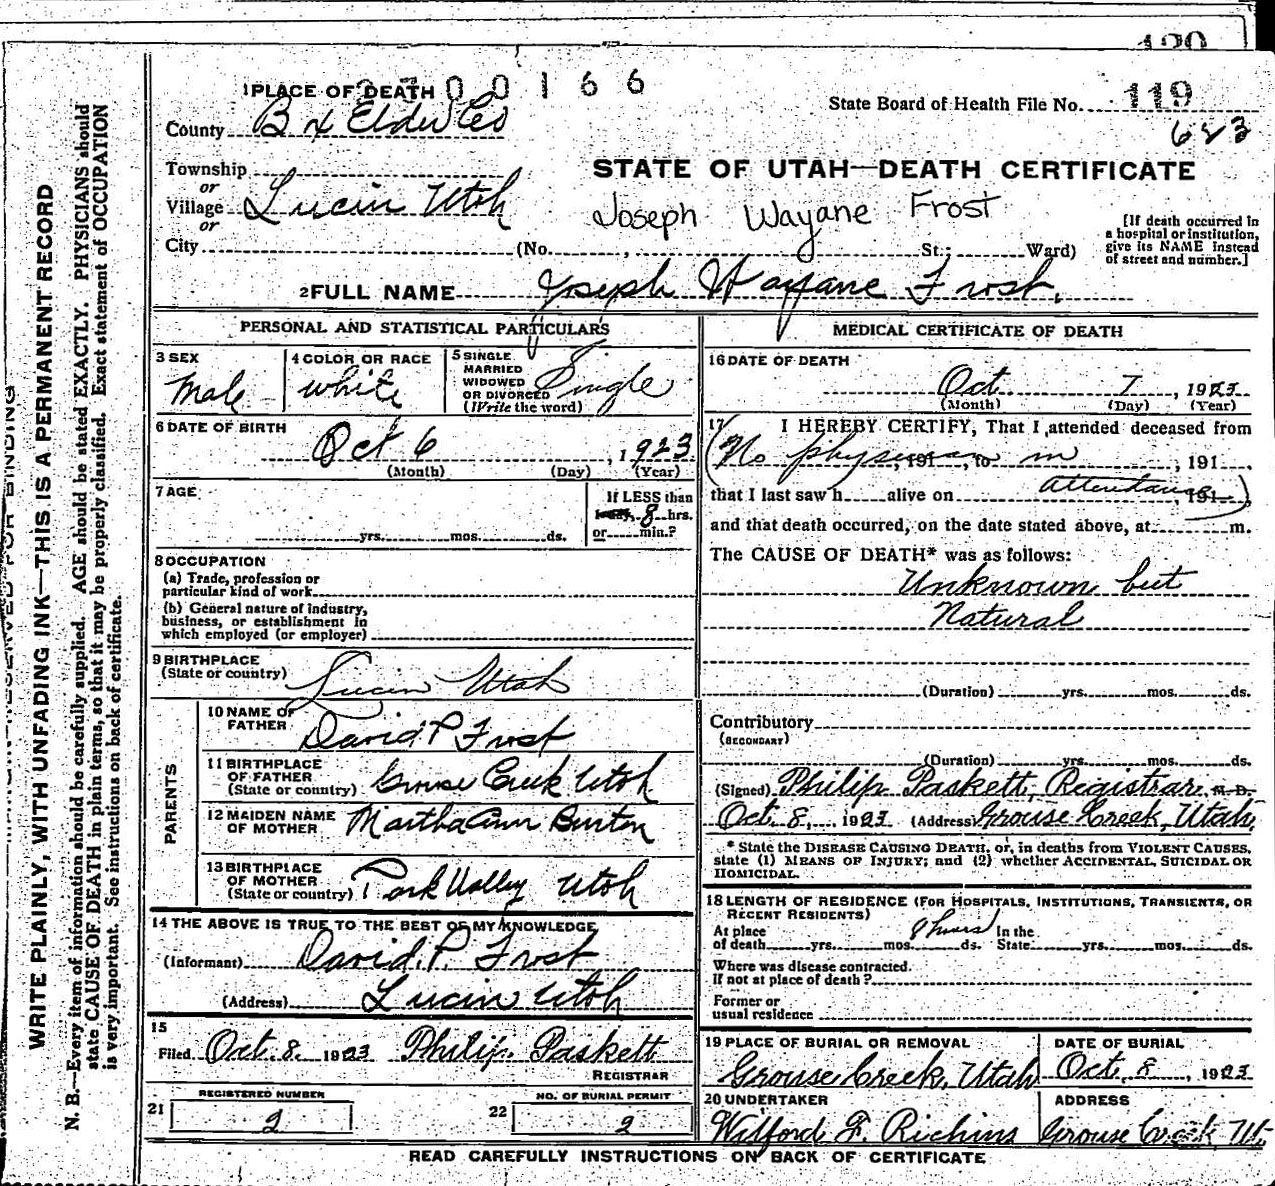 120
2700166
1 PLACE OF DEATH
State Board of Health File No. 119
623
County Bx Elder Co
STATE OF UTAH—DEATH CERTIFICATE
Township
or
Village Lucin Utah
or
Joseph Wayane Frost
City (No. , St.; Ward)
[If death occurred in
a hospital or institution,
give its NAME instead
of street and number.]
2 FULL NAME Joseph Wayane Frost.
PERSONAL AND STATISTICAL PARTICULARS
3 SEX
Male
4 COLOR OR RACE
white
5 SINGLE
MARRIED
WIDOWED
OR DIVORCED
(Write the word)
Single
6 DATE OF BIRTH
Oct 6, 1923
(Month) (Day) (Year)
7 AGE
yrs. mos. ds.
If LESS than
1 day, 8 hrs.
or min.?
8 OCCUPATION
(a) Trade, profession or
particular kind of work
(b) General nature of industry,
business, or establishment in
which employed (or employer)
9 BIRTHPLACE
(State or country) Lucin Utah
PARENTS
10 NAME OF
FATHER David P Frost
11 BIRTHPLACE
OF FATHER
(State or country) Grouse Creek Utah
12 MAIDEN NAME
OF MOTHER Martha Ann Burton
13 BIRTHPLACE
OF MOTHER
(State or country) Park Valley Utah
14 THE ABOVE IS TRUE TO THE BEST OF MY KNOWLEDGE
(Informant) David. P. Frost
(Address) Lucin Utah
15
Filed Oct. 8, 1923 Philip Paskett
REGISTRAR
REGISTERED NUMBER
21 2
NO. OF BURIAL PERMIT
22 2
MEDICAL CERTIFICATE OF DEATH
16 DATE OF DEATH
Oct. 7, 1923
(Month) (Day) (Year)
17 I HEREBY CERTIFY, That I attended deceased from
(No physician, 191 , to in , 191
that I last saw h alive on attendance), 191
and that death occurred, on the date stated above, at m.
The CAUSE OF DEATH* was as follows:
Unknown but
Natural
(Duration) yrs. mos. ds.
Contributory
(SECONDARY)
(Duration) yrs. mos. ds.
(Signed) Philip Paskett, Registrar M.D.
Oct. 8, 1923 (Address) Grouse Creek, Utah,
* State the DISEASE CAUSING DEATH, or, in deaths from VIOLENT CAUSES,
state (1) MEANS OF INJURY; and (2) whether ACCIDENTAL, SUICIDAL OR
HOMICIDAL.
18 LENGTH OF RESIDENCE (FOR HOSPITALS, INSTITUTIONS, TRANSIENTS, OR
RECENT RESIDENTS)
At place 8 hours In the
of death yrs. mos. ds. State yrs. mos. ds.
Where was disease contracted.
If not at place of death?
Former or
usual residence
19 PLACE OF BURIAL OR REMOVAL
Grouse Creek, Utah
DATE OF BURIAL
Oct. 8, 1923
20 UNDERTAKER
Wilford F. Richins
ADDRESS
Grouse Creek Ut.
READ CAREFULLY INSTRUCTIONS ON BACK OF CERTIFICATE
MARGIN RESERVED FOR BINDING
WRITE PLAINLY, WITH UNFADING INK—THIS IS A PERMANENT RECORD
N. B.—Every item of information should be carefully supplied. AGE should be stated EXACTLY. PHYSICIANS should
state CAUSE OF DEATH in plain terms, so that it may be properly classified. Exact statement of OCCUPATION
is very important. See instructions on back of certificate.